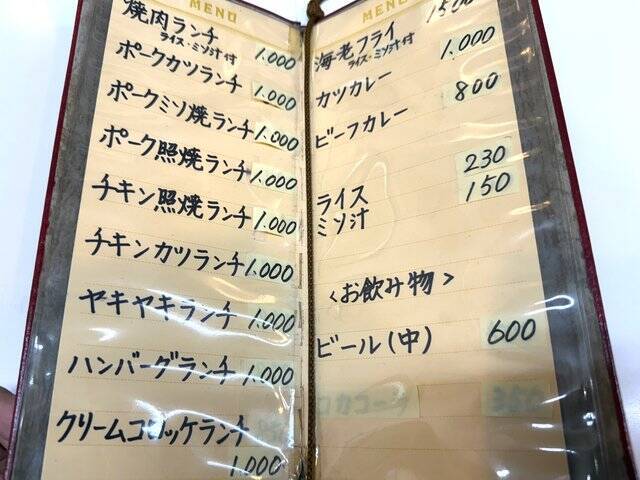 MENU
焼肉ランチ 1.000
ライス・ミソ汁付
ポークカツランチ 1.000
ポークミソ焼ランチ 1.000
ポーク照焼ランチ 1.000
チキン照焼ランチ 1.000
チキンカツランチ 1.000
ヤキヤキランチ 1.000
ハンバーグランチ 1.000
クリームコロッケランチ
1.000
MENU
海老フライ 1500
ライス・ミソ汁付
カツカレー 1.000
ビーフカレー 800
ライス 230
ミソ汁 150
<お飲み物>
ビール(中) 600
コカコーラ 350